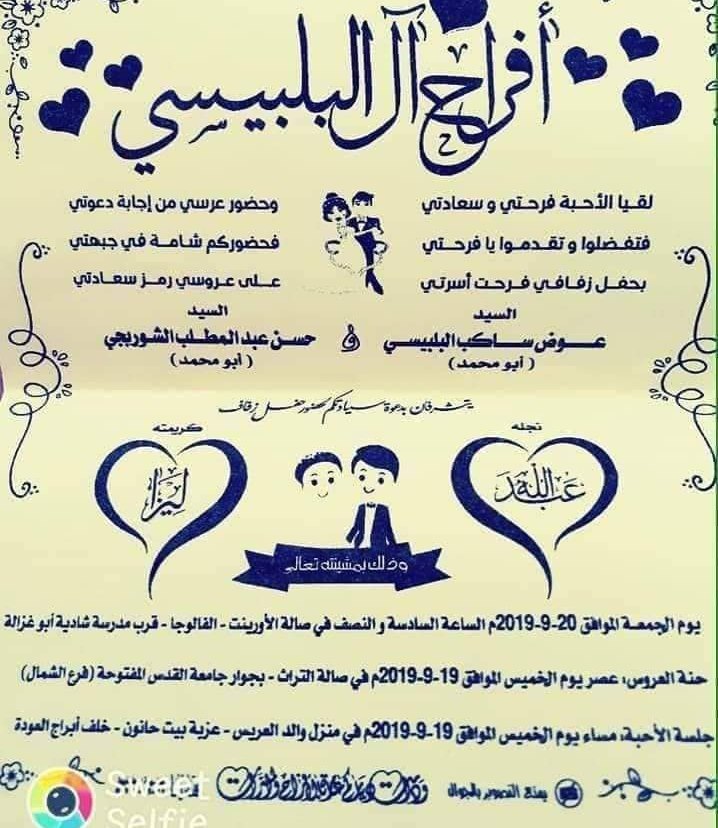 أفراح آل البلبيسي
لقيا الأحبة فرحتي و سعادتي وحضور عرسي من إجابة دعوتي
فتفضلوا و تقدموا يا فرحتي فحضوركم شامة في جبهتي
بحفل زفافي فرحت أسرتي على عروسي رمز سعادتي
السيد السيد
عوض ساكب البلبيسي و حسن عبد المطلب الشوربجي
( أبو محمد ) ( أبو محمد )
يتشرفان بدعوة سيادتكم لحضور حفل زفاف
نجله كريمته
عبد الله ليزا
وذلك بمشيئته تعالى
يوم الجمعة الموافق 20-9-2019م الساعة السادسة و النصف في صالة الأورينت - الفالوجا - قرب مدرسة شادية أبو غزالة
حنة العروس: عصر يوم الخميس الموافق 19-9-2019م في صالة التراث - بجوار جامعة القدس المفتوحة (فرع الشمال)
جلسة الأحبة: مساء يوم الخميس الموافق 19-9-2019م في منزل والد العريس - عزبة بيت حانون - خلف أبراج العودة
يمنع التصوير بالجوال ودامت دياركم عامرة بالأفراح والمسرات
Sweet
Selfie